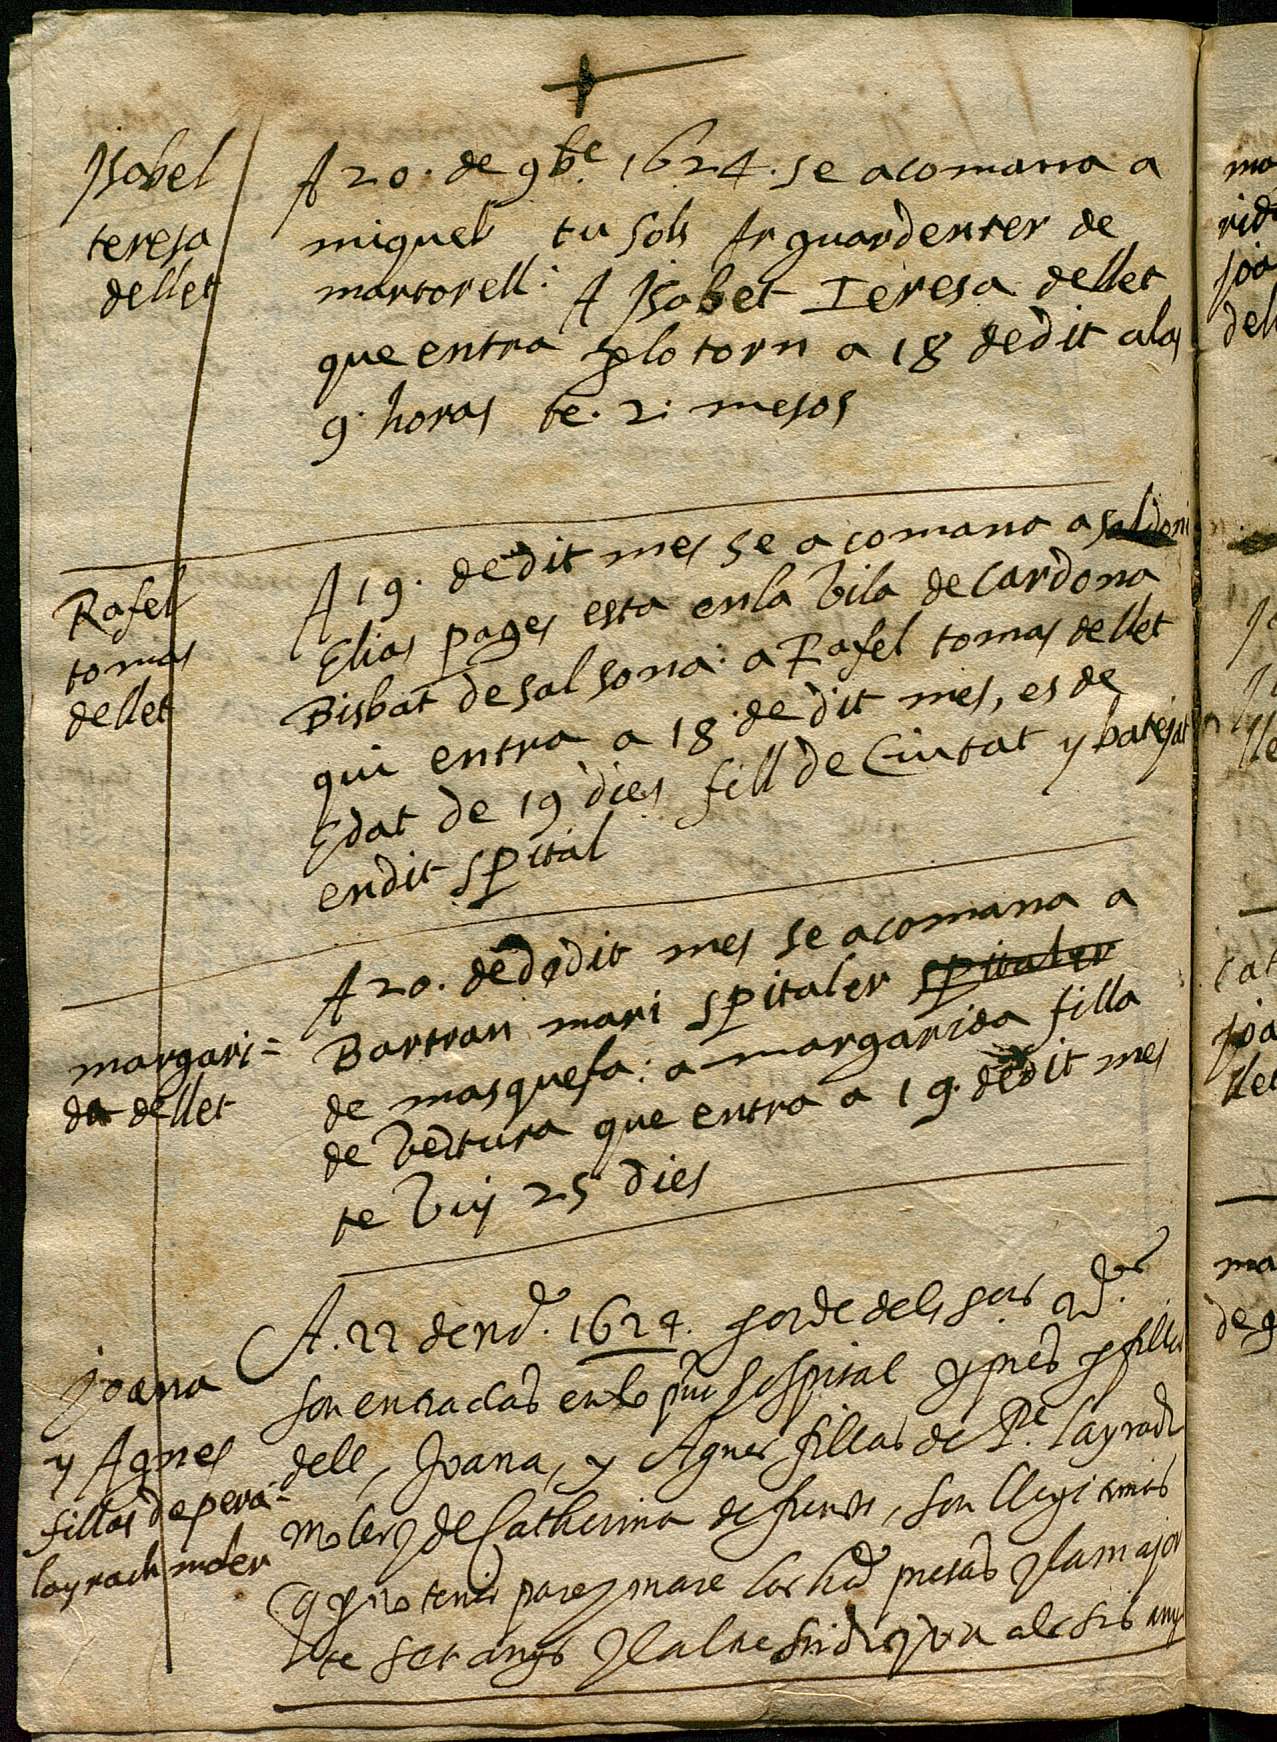 Isabel
teresa
dellet
A 20. de 9bre 1624. se acomana a
miquel tu sols Ar guardenter de
martorell: A Isabet Teresa dellet
que entra p lo torn a 18 de dit alas
9. horas te. 2. mesos
Rafel
tomas
dellet
A 19. de dit mes se acomana a saldoni
Elias pages esta en la vila de Cardona
Bisbat de sal sona: a Rafel tomas dellet
qui entra a 18. de dit mes, es de
Edat de 19 dies fill de Ciutat y batejat
en dit spital
margari=
da dellet
A 20. de dit mes se acomana a
Bartran mari spitaler spitaler
de masquefa: a margarida filla
de Ventura que entra a 19. de dit mes
te vuy 25 dies
Joana
y Agnes
fillas de pera
layrach moler
A. 22 de nd. 1624. p orde dels srs
son entradas en lo pnt hospital y p fillas
dell, Joana, y Agnes fillas de Pe. layrach
moler y de Catherina defunts, son llegitimas
q p no tenir pare y mare las hã presas y la major
te set anys y la altre